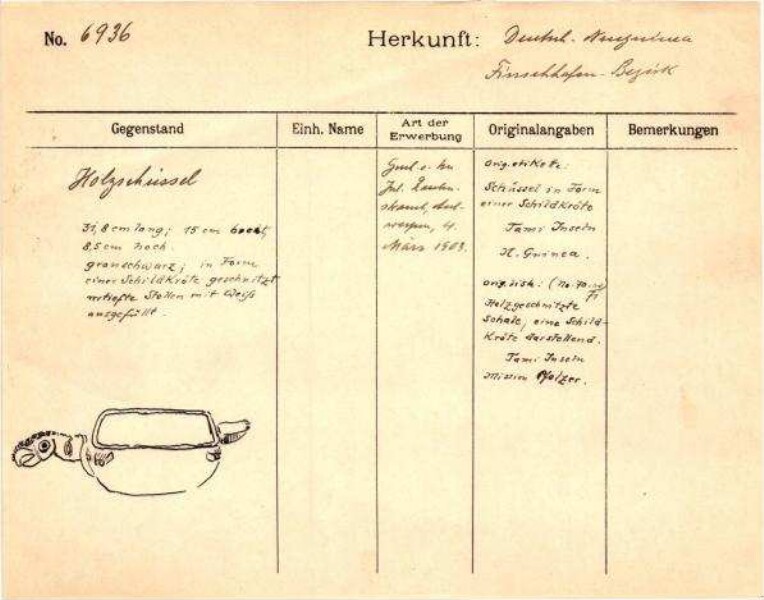 No. 6936
Herkunft: Deutsch-Neuguinea
Finschhafen-Bezirk
Gegenstand
Einh. Name
Art der
Erwerbung
Originalangaben
Bemerkungen
Holzschüssel
31,8 cm lang; 15 cm breit,
8,5 cm hoch.
grauschwarz; in Form
einer Schildkröte geschnitzt
vertiefte Stellen mit Weiß
ausgefüllt.
Jul.
4.
März 1903.
Orig. etikette:
Schüssel in Form
einer Schildkröte
Tami Inseln
N. Guinea.
Orig. lisk: (No. 70
71
Holzgeschnitzte
Schale, eine Schild-
Kröte darstellend.
Tami Inseln
Mission